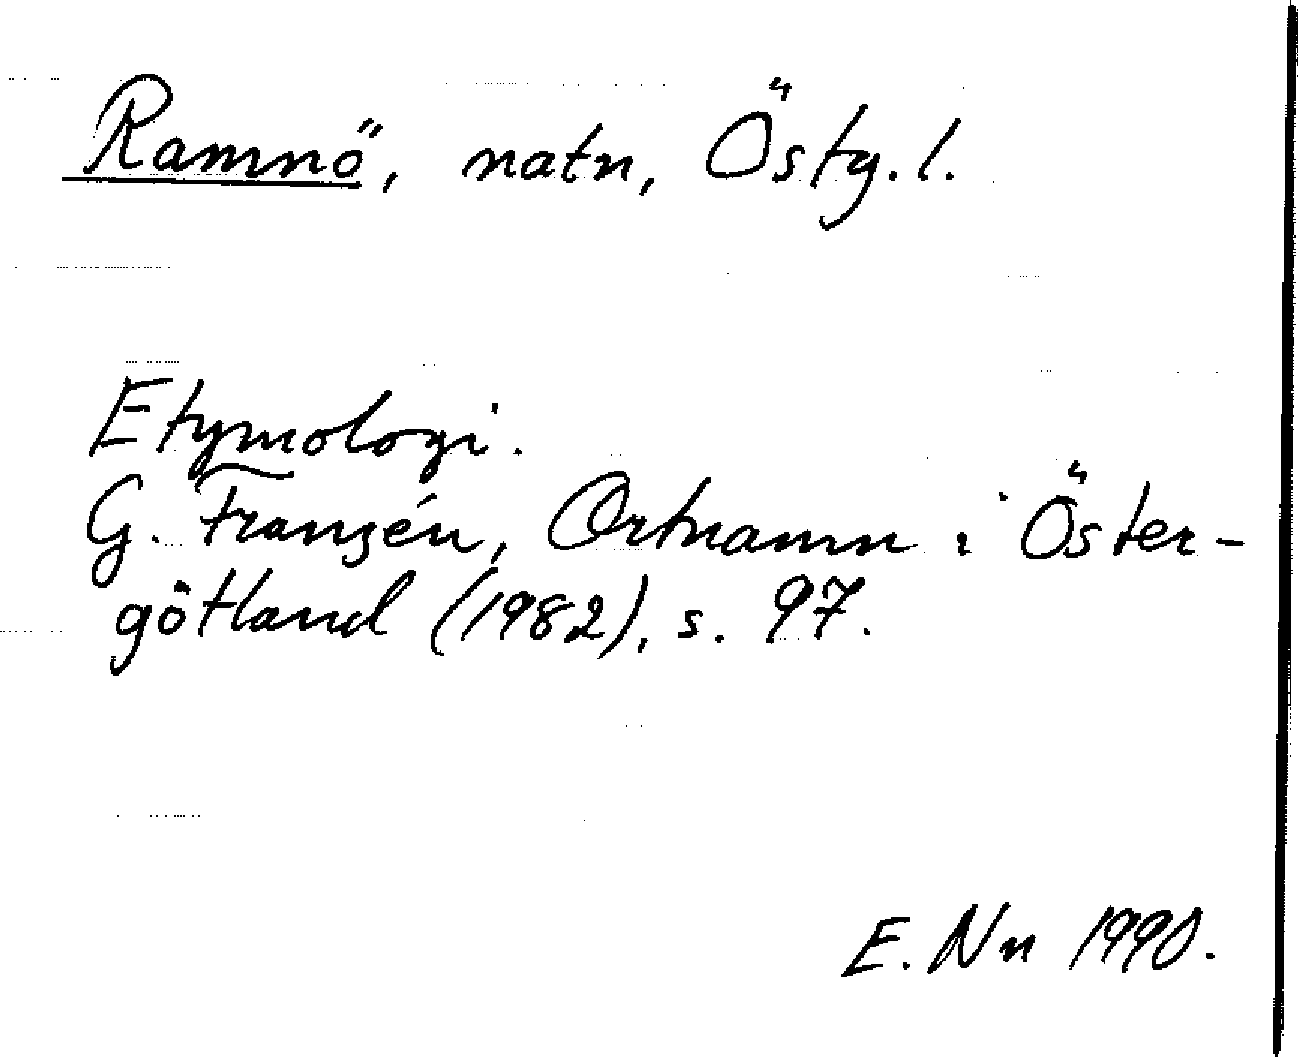 Ramnö, natn, Östg.l.
Etymologi.
G. Franzén, Ortnamn i Öster-
götland (1982), s. 97.
E. Nn 1990.